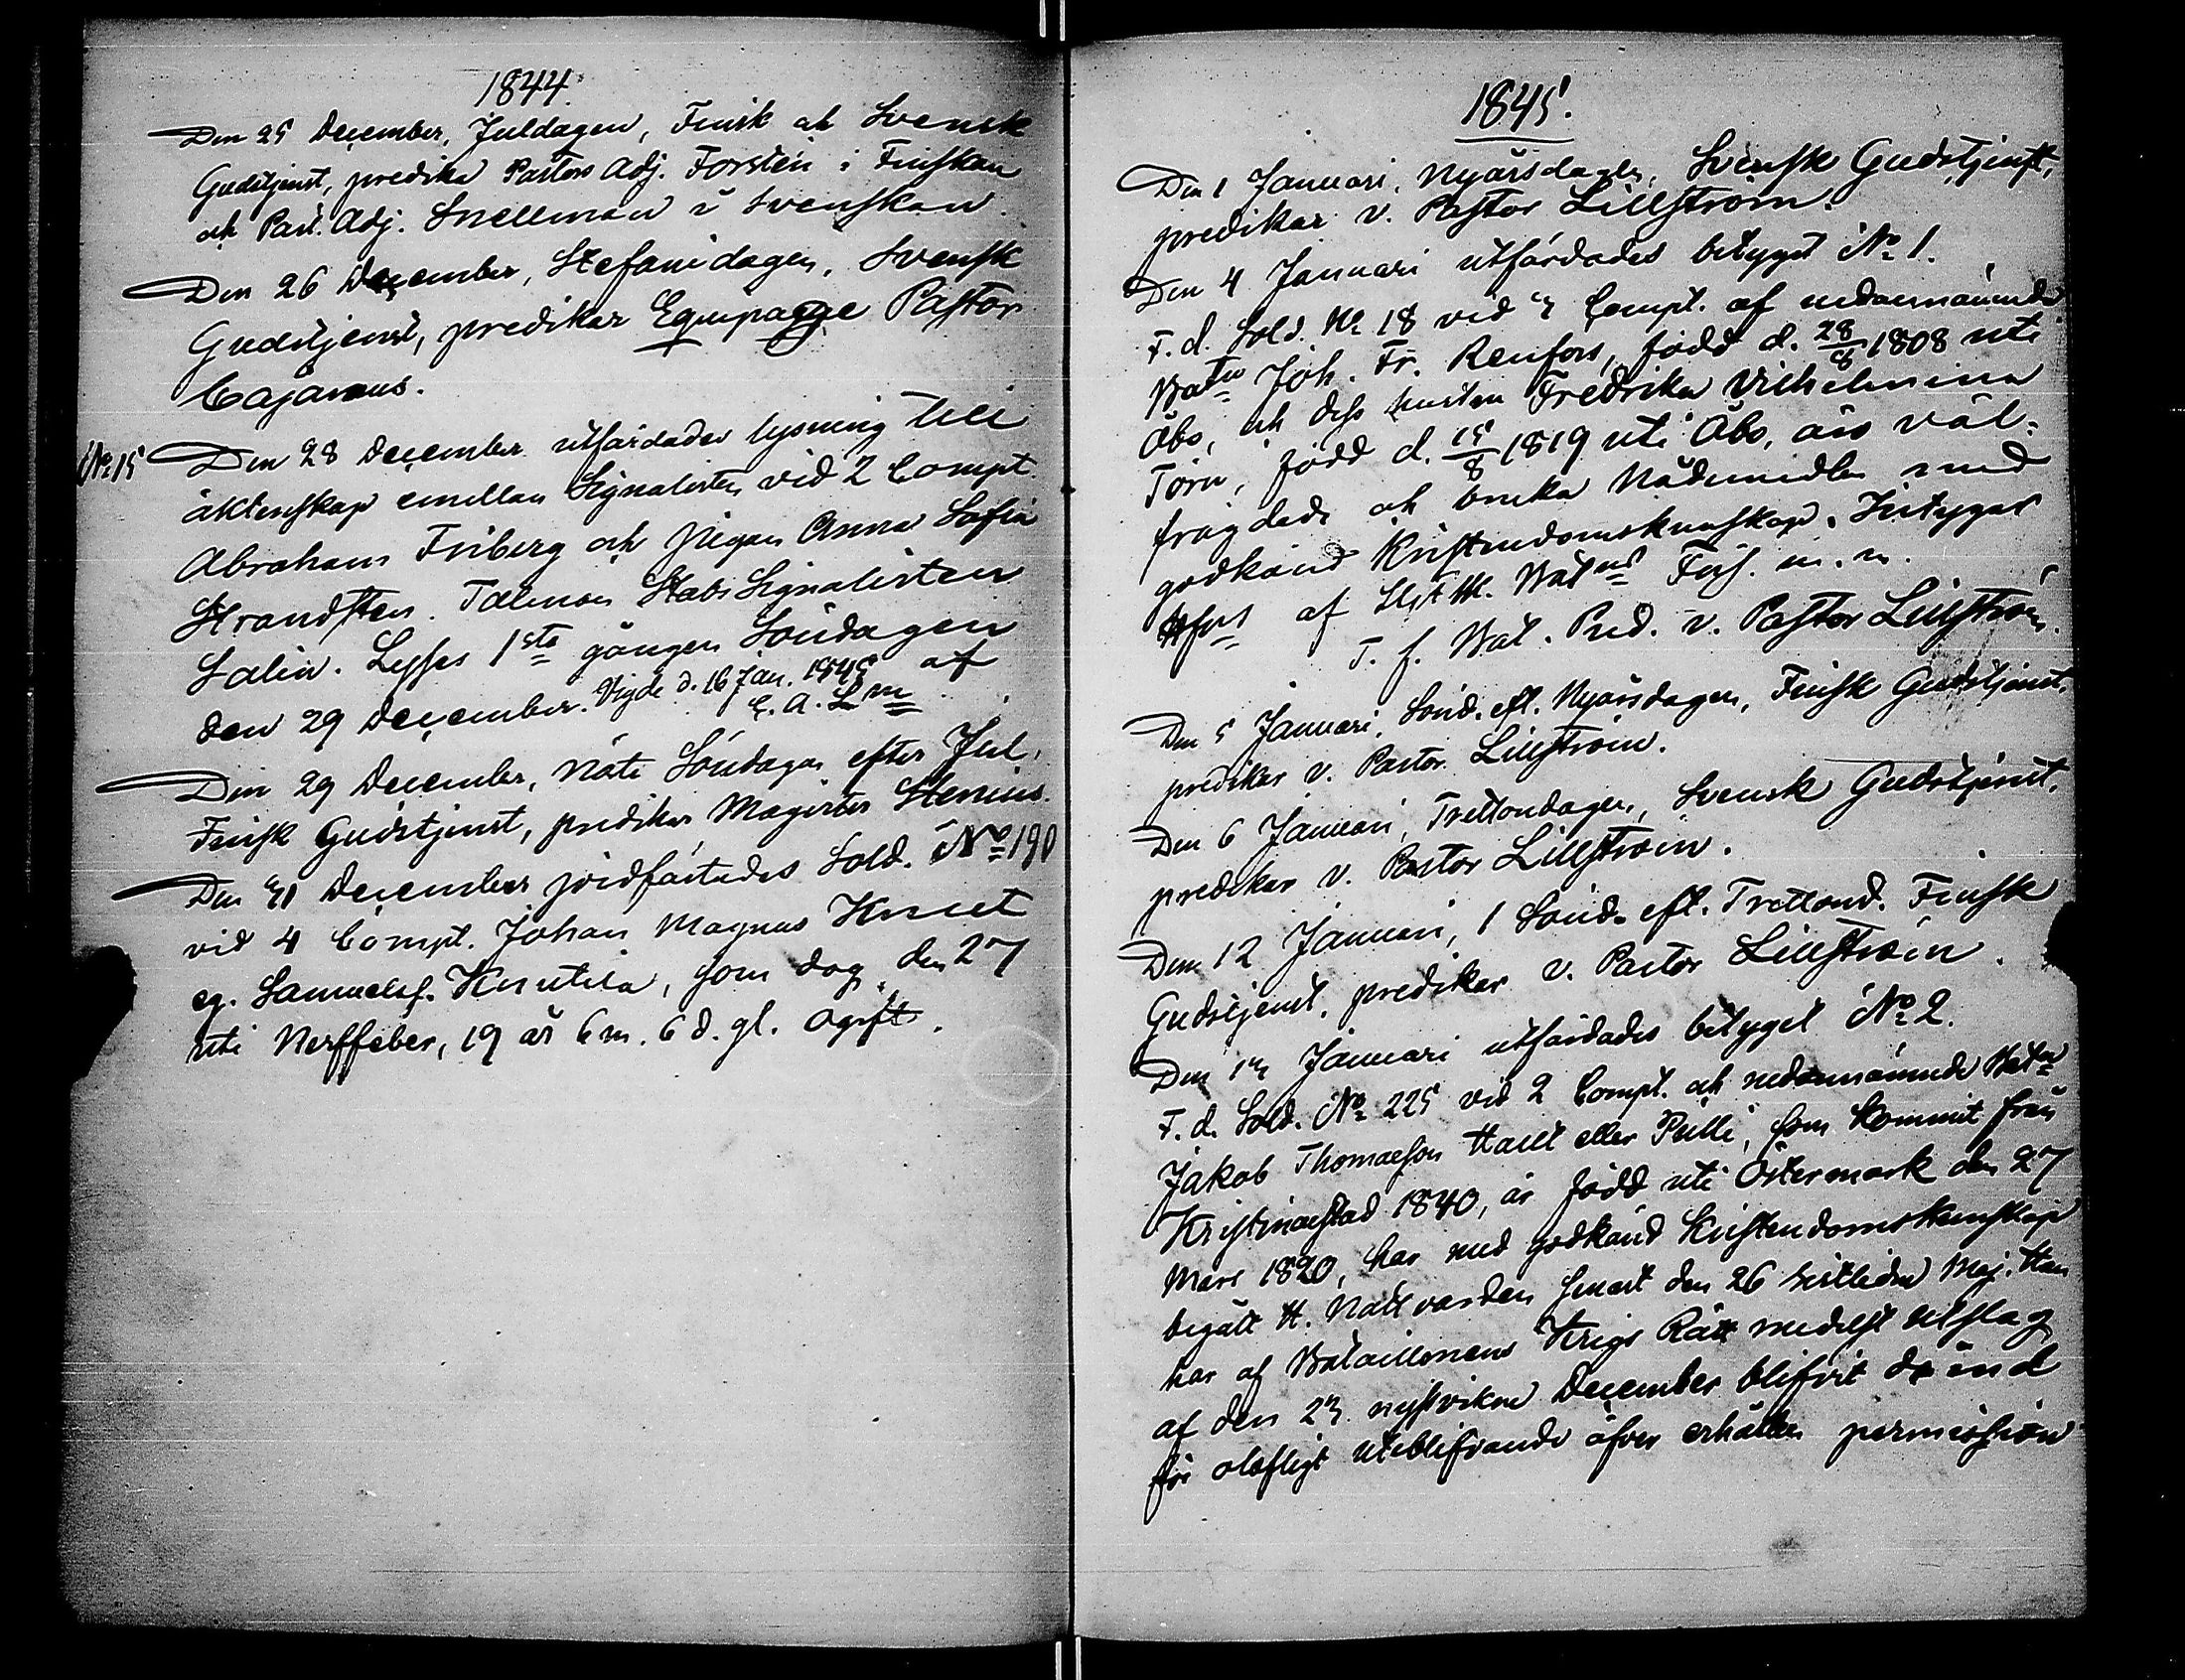 1844.
Den 25 December, Juldagen, Finsk och Svensk
Gudstjenst, predika Pastors Adj. Forstén i Finskan
och Past. Adj. Snellman i Svenskan.
Den 26 December, Stefanidagen, Svensk
Gudstjenst, predikar Equipage Pastor
Cajanus.
No 15 Den 28 December utfärdades lysning till
äktenskap emellan Signalisten vid 2 Compt.
Abraham Friberg och pigan Anna Sofia
Strandsten. Talman Stabs Signalisten
Salin. Lyses 1sta gången Söndagen
den 29 December. Vigde d. 16 Jan. 1845 af
C. A. Lm
Den 29 December, näst Söndagen efter Jul,
Finsk Gudstjenst, predikar Magister Stenius.
Den 31 December jordfästades Sold. No 190
vid 4 Compt. Johan Magnus Knut
eg. Samuelsf. Knutila, som dog den 27
uti Nerffeber, 19 år 6 m. 6 d. gl. ogift.
1845.
Den 1 Januari, Nyårsdagen, Svensk Gudstjenst,
predikar v. Pastor Lillström.
Den 4 Januari utfärdades betyget No 1.
F. d. Sold. No 18 vid 3 Compt. af nedannämnde
Batn Joh. Fr. Renfors, född d. 28/8 1808 uti
Åbo, och dess hustru Fredrika Vilhelmina
Törn, född d. 15/8 1819 uti Åbo, äro väl-
frägdade och bruka Nådemidlen med
godkänd Kristendomskunskap. Intygas
Hfors af Sjöt M. Batns Förs. m. m.
T. f. Bat. Pred. v. Pastor Lillström.
Den 5 Januari, Sönd. eft. Nyårsdagen, Finsk Gudstjenst,
predikar v. Pastor Lillström.
Den 6 Januari, Trettondagen, Svensk Gudstjenst,
predikar v. Pastor Lillström.
Den 12 Januari, 1 Sönd. eft. Trettond. Finsk
Gudstjenst, predikar v. Pastor Lillström.
Den 13 Januari utfärdades betyget No 2.
F. d. Sold. No 225 vid 2 Compt. och nedannämnde Batn
Jakob Thomasson Hallt eller Pulli, som kommit från
Kristinaestad 1840, är född uti Östermark den 27
Mars 1820, har med godkänd Kristendomskunskap
begått H. Nattvarden senast den 26 sistledne Maj. Han
har af Bataillonens Krigs Rätt medelst utslag
af den 23 nystvikne December blifvit dömd
för olofligt uteblifvande öfver erhållen permission